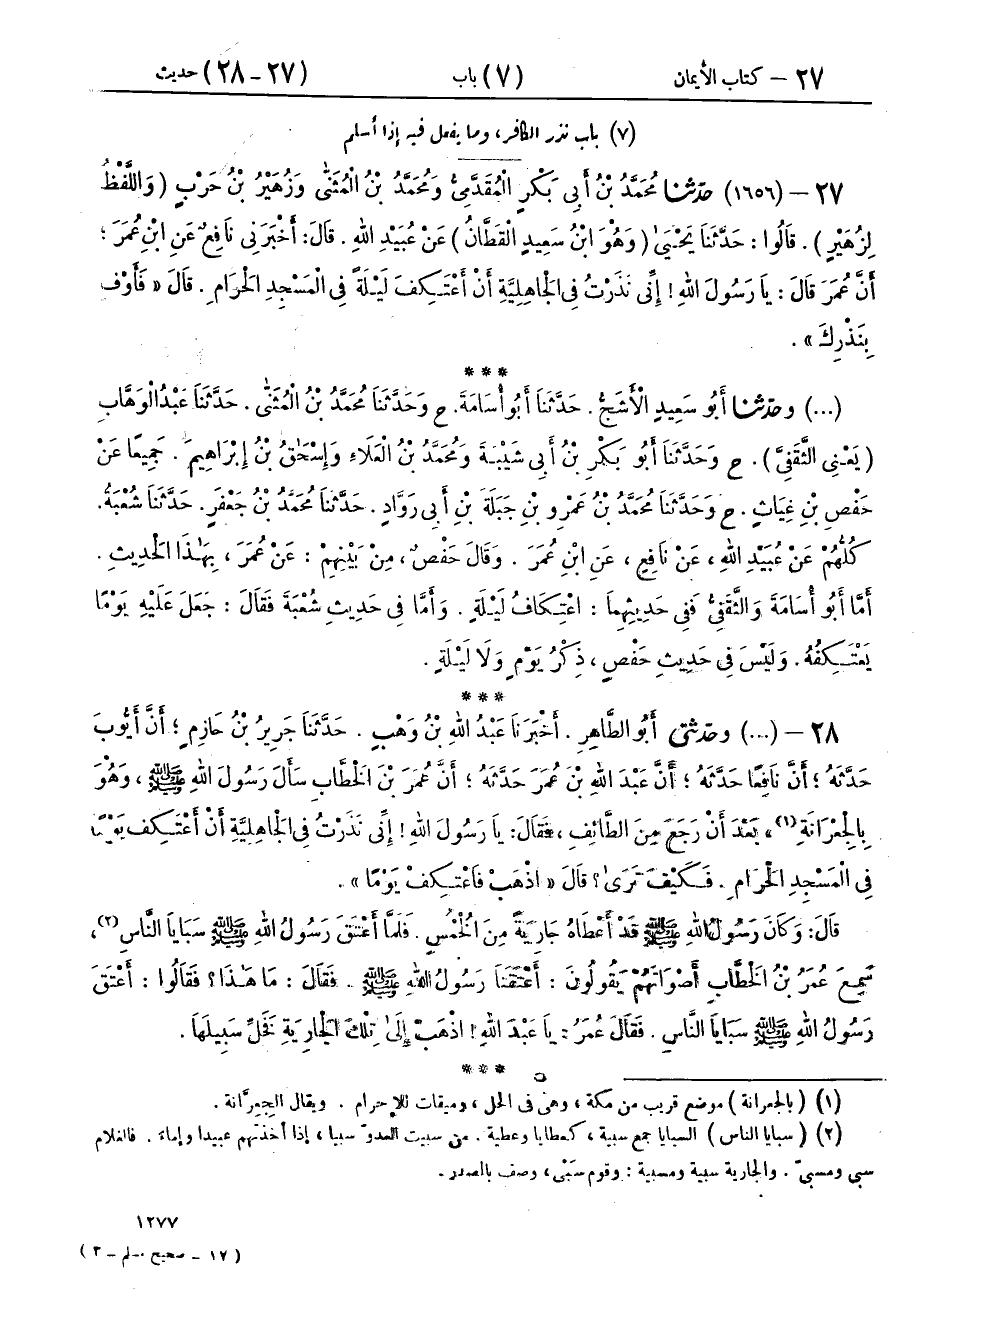 ٢٧ – كتاب الأيمان (٧) باب (٢٧ – ٢٨) حديث
(٧) باب نذر الكافر، وما يفعل فيه إذا أسلم
٢٧ – (١٦٥٦) حدّثنا مُحَمَّدُ بْنُ أَبِي بَكْرٍ الْمُقَدَّمِيُّ وَمُحَمَّدُ بْنُ الْمُثَنَّىٰ وَزُهَيْرُ بْنُ حَرْبٍ (وَاللَّفْظُ
لِزُهَيْرٍ). قَالُوا: حَدَّثَنَا يَحْيَىٰ (وَهُوَ ابْنُ سَعِيدٍ الْقَطَّانُ) عَنْ عُبَيْدِ اللهِ. قَالَ: أَخْبَرَنِي نَافِعٌ عَنِ ابْنِ عُمَرَ؛
أَنَّ عُمَرَ قَالَ: يَا رَسُولَ اللهِ! إِنِّي نَذَرْتُ فِي الْجَاهِلِيَّةِ أَنْ أَعْتَكِفَ لَيْلَةً فِي الْمَسْجِدِ الْحَرَامِ. قَالَ «فَأَوْفِ
بِنَذْرِكَ».
***
(...) وحدّثنا أَبُو سَعِيدٍ الْأَشَجُّ. حَدَّثَنَا أَبُو أُسَامَةَ. ح وَحَدَّثَنَا مُحَمَّدُ بْنُ الْمُثَنَّىٰ. حَدَّثَنَا عَبْدُ الْوَهَّابِ
(يَعْنِي الثَّقَفِيَّ). ح وَحَدَّثَنَا أَبُو بَكْرِ بْنُ أَبِي شَيْبَةَ وَمُحَمَّدُ بْنُ الْعَلَاءِ وَإِسْحَٰقُ بْنُ إِبْرَاهِيمَ. جَمِيعًا عَنْ
حَفْصِ بْنِ غِيَاثٍ. ح وَحَدَّثَنَا مُحَمَّدُ بْنُ عَمْرِو بْنِ جَبَلَةَ بْنِ أَبِي رَوَّادٍ. حَدَّثَنَا مُحَمَّدُ بْنُ جَعْفَرٍ. حَدَّثَنَا شُعْبَةُ.
كُلُّهُمْ عَنْ عُبَيْدِ اللهِ، عَنْ نَافِعٍ، عَنِ ابْنِ عُمَرَ. وَقَالَ حَفْصٌ، مِنْ بَيْنِهِمْ: عَنْ عُمَرَ، بِهَٰذَا الْحَدِيثِ.
أَمَّا أَبُو أُسَامَةَ وَالثَّقَفِيُّ فَفِي حَدِيثِهِمَا: اعْتِكَافُ لَيْلَةٍ. وَأَمَّا فِي حَدِيثِ شُعْبَةَ فَقَالَ: جَعَلَ عَلَيْهِ يَوْمًا
يَعْتَكِفُهُ. وَلَيْسَ فِي حَدِيثِ حَفْصٍ، ذِكْرُ يَوْمٍ وَلَا لَيْلَةٍ.
***
٢٨ – (...) وحدّثني أَبُو الطَّاهِرِ. أَخْبَرَنَا عَبْدُ اللهِ بْنُ وَهْبٍ. حَدَّثَنَا جَرِيرُ بْنُ حَازِمٍ؛ أَنَّ أَيُّوبَ
حَدَّثَهُ؛ أَنَّ نَافِعًا حَدَّثَهُ؛ أَنَّ عَبْدَ اللهِ بْنَ عُمَرَ حَدَّثَهُ؛ أَنَّ عُمَرَ بْنَ الْخَطَّابِ سَأَلَ رَسُولَ اللهِ ﷺ، وَهُوَ
بِالْجِعْرَانَةِ(١)، بَعْدَ أَنْ رَجَعَ مِنَ الطَّائِفِ، فَقَالَ: يَا رَسُولَ اللهِ! إِنِّي نَذَرْتُ فِي الْجَاهِلِيَّةِ أَنْ أَعْتَكِفَ يَوْمًا
فِي الْمَسْجِدِ الْحَرَامِ. فَكَيْفَ تَرَىٰ؟ قَالَ «اذْهَبْ فَاعْتَكِفْ يَوْمًا».
قَالَ: وَكَانَ رَسُولُ اللهِ ﷺ قَدْ أَعْطَاهُ جَارِيَةً مِنَ الْخُمْسِ. فَلَمَّا أَعْتَقَ رَسُولُ اللهِ ﷺ سَبَايَا النَّاسِ(٢)،
سَمِعَ عُمَرُ بْنُ الْخَطَّابِ أَصْوَاتَهُمْ يَقُولُونَ: أَعْتَقَنَا رَسُولُ اللهِ ﷺ. فَقَالَ: مَا هَٰذَا؟ فَقَالُوا: أَعْتَقَ
رَسُولُ اللهِ ﷺ سَبَايَا النَّاسِ. فَقَالَ عُمَرُ: يَا عَبْدَ اللهِ! اذْهَبْ إِلَىٰ تِلْكَ الْجَارِيَةِ فَخَلِّ سَبِيلَهَا.
***
(١) (بالجعرانة) موضع قريب من مكة، وهي في الحل، وميقات للإحرام. ويقال الجِعِرَّانة.
(٢) (سبايا الناس) السبايا جمع سبية، كعطايا وعطية. من سبيت العدوّ سبيا، إذا أخذتهم عبيدا وإماء. فالغلام
سبي ومسبيّ. والجارية سبية ومسبية: وقوم سَبْي، وصف بالمصدر.
١٢٧٧
(١٧ – صحيح مسلم – ٣)